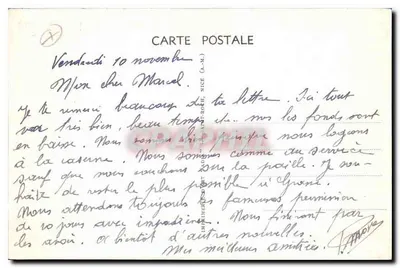 CARTE POSTALE
Vendredi 10 novembre
Mon cher Marcel.
Je te remercie beaucoup de ta lettre. Ici tout
va très bien, beau temps etc.. mais les fonds sont
en baisse. Nous que nous logeons
à la caserne. Nous sommes comme au service
sauf que nous couchons sur la paille. Je sou-
haite de rester le plus possible à
Nous attendons toujours les fameuses permission
de 10 jours avec impatience. Nous finirons par
les avoir. A bientôt d'autres nouvelles.
Mes meilleures amitiés.